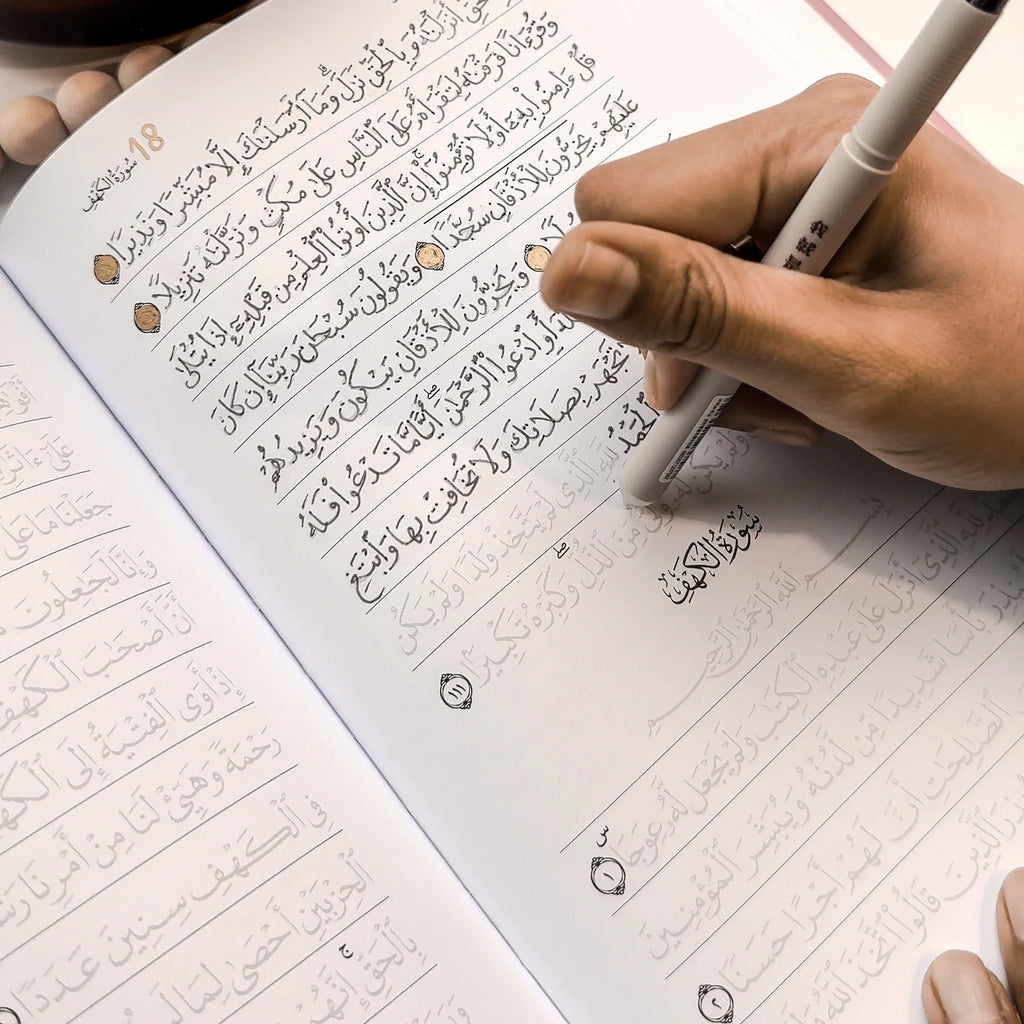 سُورَةُ الكَهْفِ 18
أَنزَلْنَٰهُ وَبِٱلْحَقِّ نَزَلَ وَمَآ أَرْسَلْنَٰكَ إِلَّا مُبَشِّرًا وَنَذِيرًا
وَقُرْءَانًا فَرَقْنَٰهُ لِتَقْرَأَهُۥ عَلَى ٱلنَّاسِ عَلَىٰ مُكْثٍ وَنَزَّلْنَٰهُ تَنزِيلًا
قُلْ ءَامِنُوا۟ بِهِۦٓ أَوْ لَا تُؤْمِنُوٓا۟ ۚ إِنَّ ٱلَّذِينَ أُوتُوا۟ ٱلْعِلْمَ مِن قَبْلِهِۦٓ إِذَا يُتْلَىٰ
عَلَيْهِمْ يَخِرُّونَ لِلْأَذْقَانِ سُجَّدًا وَيَقُولُونَ سُبْحَٰنَ رَبِّنَآ إِن كَانَ
وَيَخِرُّونَ لِلْأَذْقَانِ يَبْكُونَ وَيَزِيدُهُمْ
أَوِ ٱدْعُوا۟ ٱلرَّحْمَٰنَ ۖ أَيًّا مَّا تَدْعُوا۟ فَلَهُ
تَجْهَرْ بِصَلَاتِكَ وَلَا تُخَافِتْ بِهَا وَٱبْتَغِ
ٱلْحَمْدُ لِلَّهِ ٱلَّذِى لَمْ يَتَّخِذْ وَلَدًا وَلَمْ يَكُن
لَّهُۥ وَلِىٌّ مِّنَ ٱلذُّلِّ ۖ وَكَبِّرْهُ تَكْبِيرًۢا ١١١
سُورَةُ الكَهْفِ
بِسْمِ ٱللَّهِ ٱلرَّحْمَٰنِ ٱلرَّحِيمِ
لِلَّهِ ٱلَّذِىٓ أَنزَلَ عَلَىٰ عَبْدِهِ ٱلْكِتَٰبَ وَلَمْ يَجْعَل لَّهُۥ عِوَجَا ۜ ١
بَأْسًا شَدِيدًا مِّن لَّدُنْهُ وَيُبَشِّرَ ٱلْمُؤْمِنِينَ
ٱلصَّٰلِحَٰتِ أَنَّ لَهُمْ أَجْرًا حَسَنًا ٢
ٱلَّذِينَ قَالُوا۟ ٱتَّخَذَ ٱللَّهُ
جَعَلْنَا مَا عَلَى
وَإِنَّا لَجَٰعِلُونَ
أَنَّ أَصْحَٰبَ ٱلْكَهْفِ
إِذْ أَوَى ٱلْفِتْيَةُ إِلَى ٱلْكَهْفِ
رَحْمَةً وَهَيِّئْ لَنَا مِنْ أَمْرِنَا
فِى ٱلْكَهْفِ سِنِينَ عَدَدًا
ٱلْحِزْبَيْنِ أَحْصَىٰ لِمَا
بِٱلْحَقِّ ۚ إِنَّهُمْ